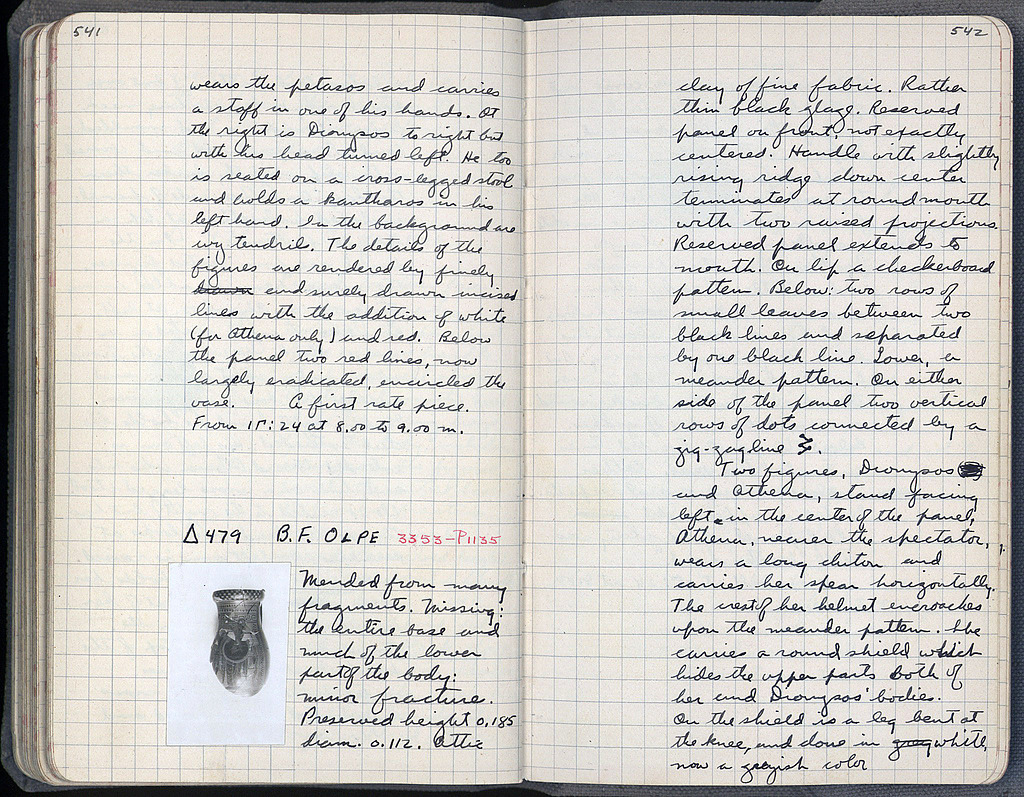 541
wears the petasos and carries
a staff in one of his hands. At
the right is Dionysos to right but
with his head turned left. He too
is seated on a cross-legged stool
and holds a kantharos in his
left hand. In the background are
ivy tendrils. The details of the
figures are rendered by finely
drawn and surely drawn incised
lines with the addition of white
(for Athena only) and red. Below
the panel two red lines, now
largely eradicated, encircled the
vase. A first rate piece.
From 15:24 at 8.00 to 9.00 m.
Δ479 B.F. OLPE 3353-P1135
Mended from many
fragments. Missing:
the entire base and
much of the lower
part of the body:
minor fracture.
Preserved height 0.185
diam. 0.112. Attic
542
clay of fine fabric. Rather
thin black glaze. Reserved
panel on front, not exactly
centered. Handle with slightly
rising ridge down center
terminates at round mouth
with two raised projections.
Reserved panel extends to
mouth. On lip a checkerboard
pattern. Below: two rows of
small leaves between two
black lines and separated
by one black line. Lower, a
meander pattern. On either
side of the panel two vertical
rows of dots connected by a
zig-zag line.
Two figures, Dionysos
and Athena, stand facing
left in the center of the panel,
Athena, nearer the spectator,
wears a long chiton and
carries her spear horizontally.
The crest of her helmet encroaches
upon the meander pattern. She
carries a round shield which
hides the upper parts both of
her and Dionysos' bodies.
On the shield is a leg bent at
the knee, and done in grey white,
now a greyish color